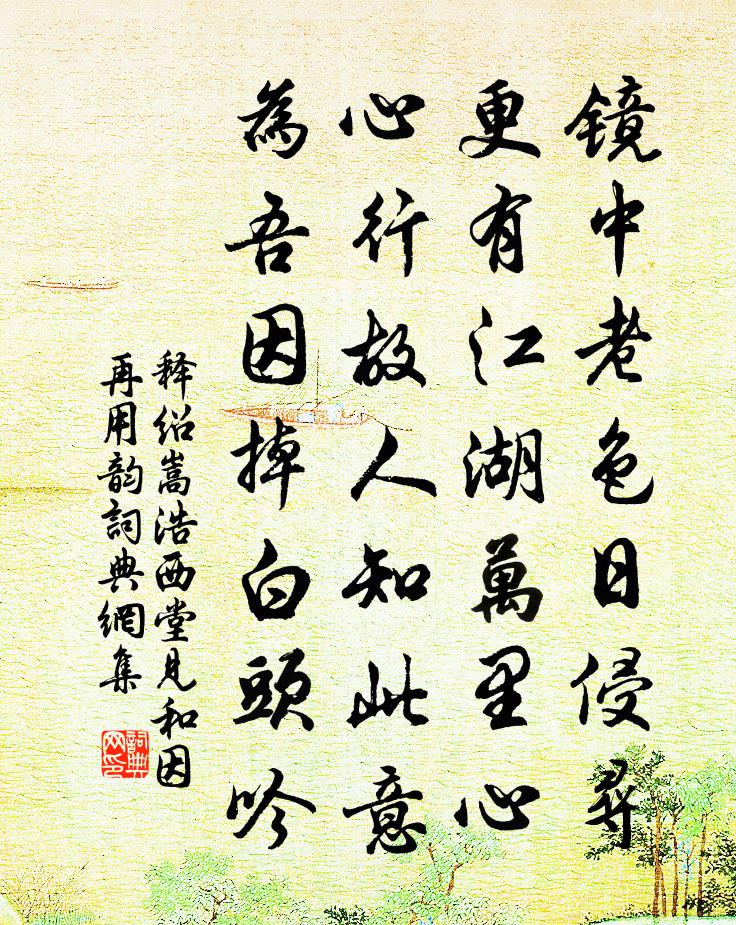 鏡中老色日侵尋
更有江湖萬里心
心行故人知此意
為吾因掉白頭吟
釋紹嵩浩西堂見和因
再用韵詞典網集
詞典网印